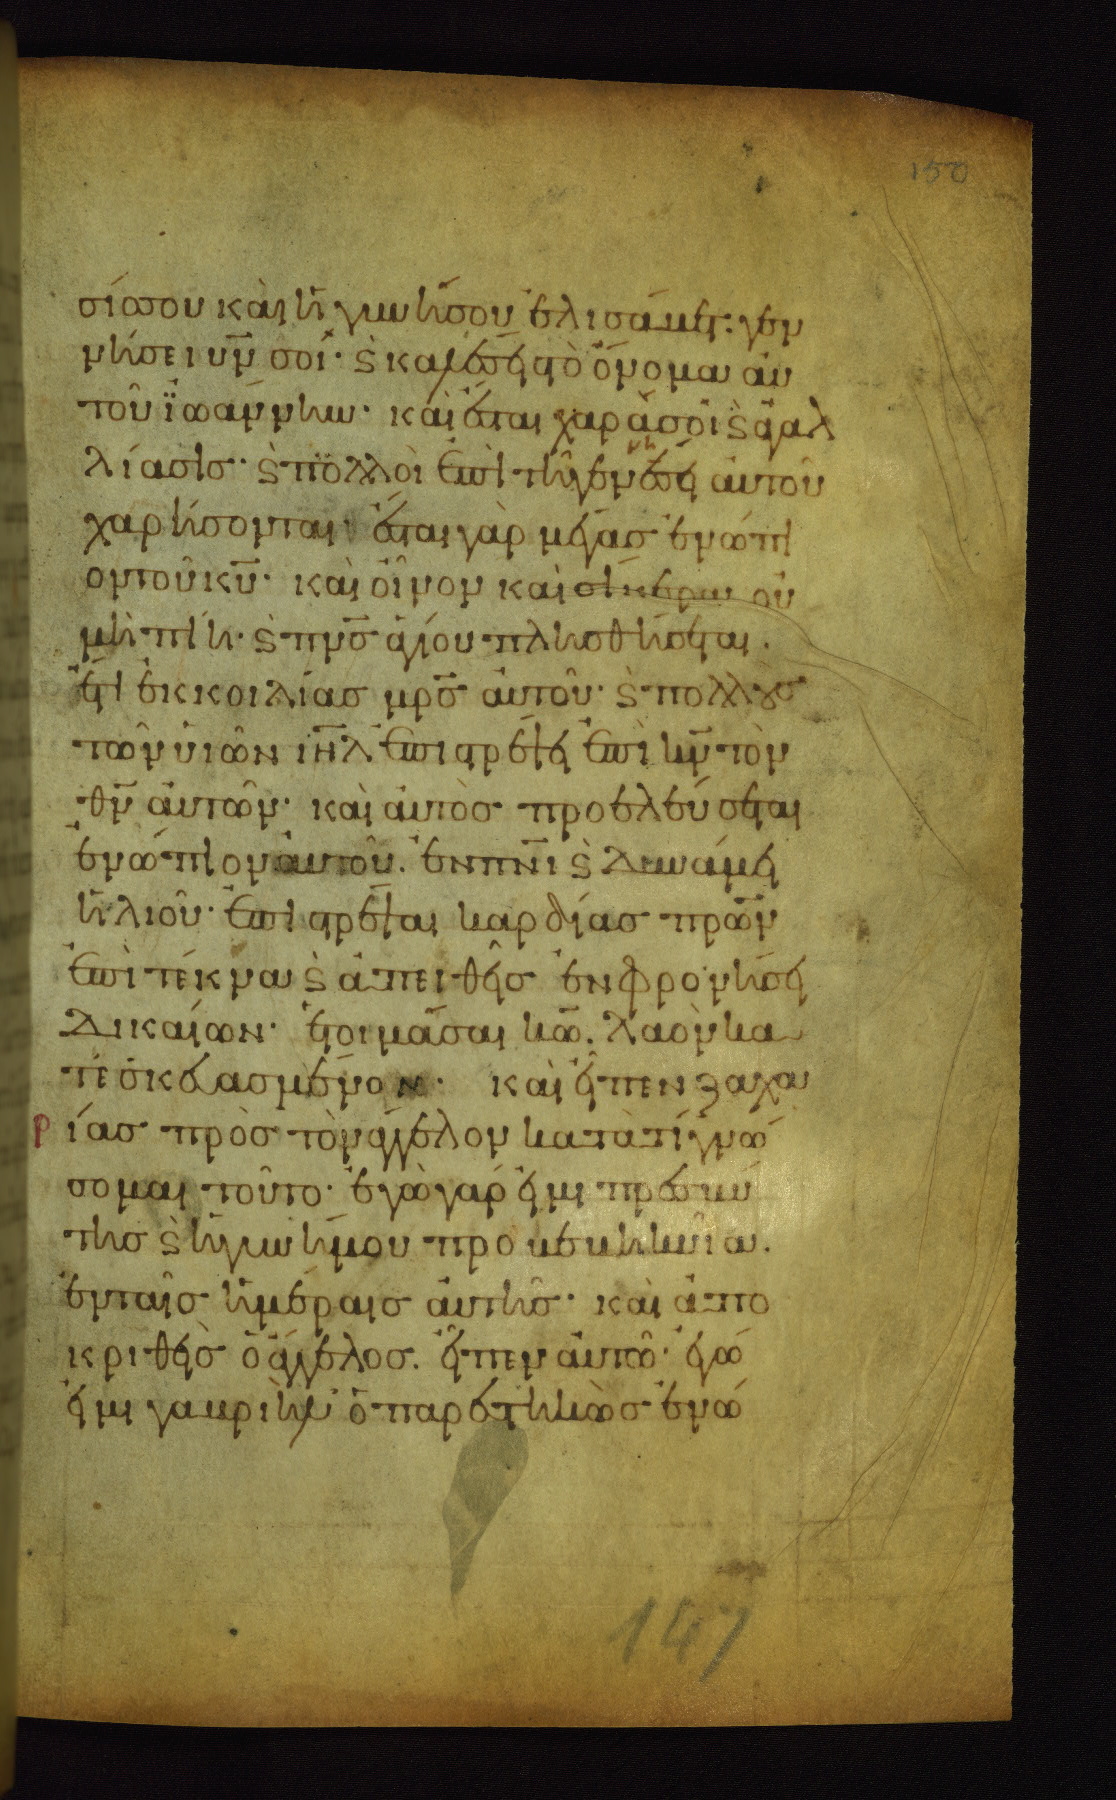 150
σίσσου καὶ ἡ γυνή σου ἐλισάβετ· γεν
νήσει υν̅ σοί· ϛ̀ καλέσεις τὸ ὄνομα αὐ
τοῦ ϊωάννην· καὶ ἔσται χαρά σοι ϛ̀ ἀγαλ
λίασις· ϛ̀ πολλοὶ ἐπὶ τῇ γεννήσει αὐτοῦ
χαρήσονται· ἔσται γὰρ μέγας ἐνώπι
ον τοῦ κυ̅· καὶ οἶνον καὶ σίκερα οὐ
μὴ πίῃ· ϛ̀ πνσ̅ ἁγίου πλησθήσεται.
ἔτι ἐκ κοιλίας μρσ̅ αὐτοῦ· ϛ̀ πολλοὺς
τῶν υἱῶν ιηλ̅ ἐπιστρέψει ἐπὶ κν̅ τὸν
θν̅ αὐτῶν· καὶ αὐτὸς προελεύσεται
ἐνώπιον αὐτοῦ. ἐν πνι̅ ϛ̀ δυνάμει
ἡλιοῦ· ἐπιστρέψαι καρδίας πρων̅
ἐπὶ τέκνα ϛ̀ ἀπειθεῖς ἐν φρονήσει
δικαίων· ἑτοιμάσαι κω̅. λαὸν κα
τεσκευασμένον· καὶ εἶπεν ζαχα
ρίας πρὸς τὸν ἄγγελον κατὰ τί γνώ
σομαι τοῦτο· ἐγὼ γάρ εἰμι πρεσβύ
της ϛ̀ ἡ γυνή μου προβεβηκυῖα.
ἐν ταῖς ἡμέραις αὐτῆς· καὶ ἀπο
κριθεὶς ὁ ἄγγελος. εἶπεν αὐτῶ· ἐγώ
εἰμι γαβριὴλ ὁ παρεστηκὼς ἐνώ
147